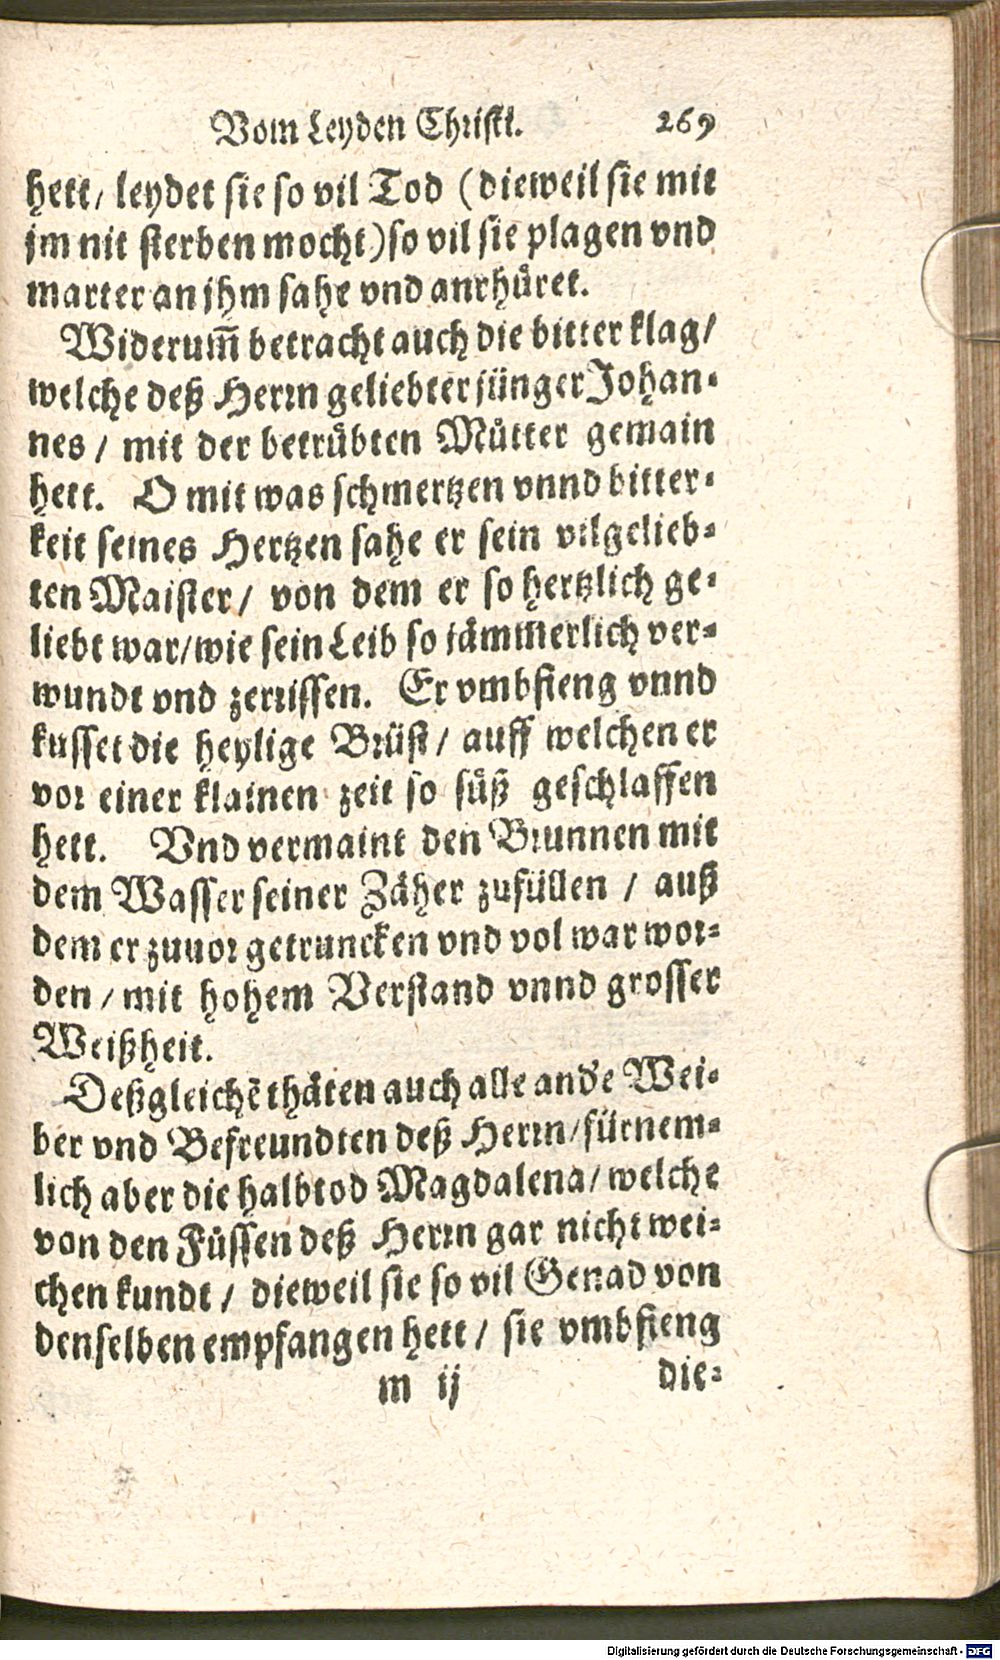 Vom Leyden Christi. 269
hett/ leydet sie so vil Tod (dieweil sie mit
jm nit sterben mocht) so vil sie plagen vnd
marter an jhm sahe vnd anrhůret.
Widerum̃ betracht auch die bitter klag/
welche deß Herrn geliebter jünger Johan-
nes / mit der betrůbten Můtter gemain
hett. O mit was schmertzen vnnd bitter-
keit seines Hertzen sahe er sein vilgelieb-
ten Maister/ von dem er so hertzlich ge-
liebt war/ wie sein Leib so jämmerlich ver-
wundt vnd zerrissen. Er vmbfieng vnnd
kusset die heylige Brüst/ auff welchen er
vor einer klainen zeit so süß geschlaffen
hett. Vnd vermaint den Brunnen mit
dem Wasser seiner Zäher zufüllen / auß
dem er zuuor getruncken vnd vol war wor-
den / mit hohem Verstand vnnd grosser
Weißheit.
Deßgleichẽ thäten auch alle and'e Wei-
ber vnd Befreundten deß Herrn/ fürnem-
lich aber die halbtod Magdalena/ welche
von den Füssen deß Herrn gar nicht wei-
chen kundt / dieweil sie so vil Genad von
denselben empfangen hett / sie vmbfieng
m ij die-
Digitalisierung gefördert durch die Deutsche Forschungsgemeinschaft - DFG